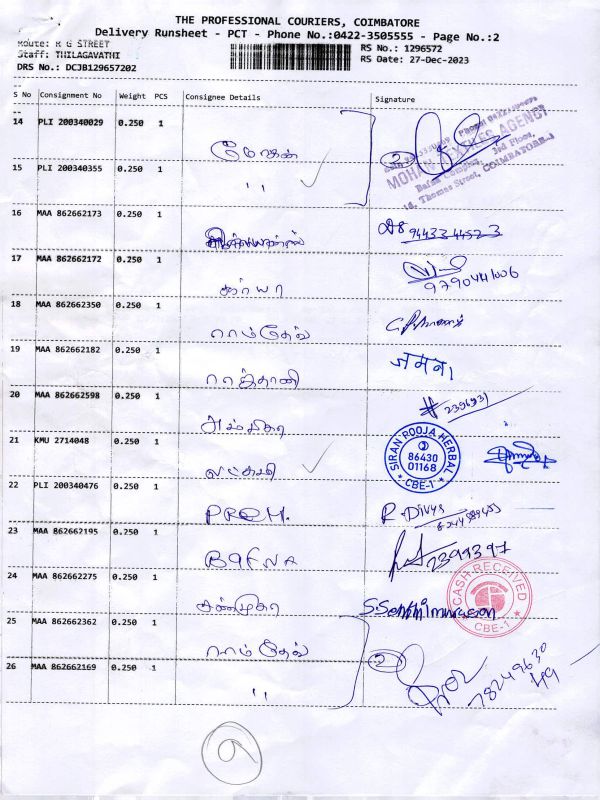 THE PROFESSIONAL COURIERS, COIMBATORE
Delivery Runsheet - PCT - Phone No.:0422-3505555 - Page No.:2
Route: R G STREET
RS No.: 1296572
Staff: THILAGAVATHI
RS Date: 27-Dec-2023
DRS No.: DCJB129657202
S No Consignment No Weight PCS Consignee Details Signature
14 PLI 200340029 0.250 1 மோகன் 2
MOHAN TEXTILES AGENCY
3rd Floor,
16, Thomas Street, COIMBATORE-1
15 PLI 200340355 0.250 1 ,,
16 MAA 862662173 0.250 1 9443344523
17 MAA 862662172 0.250 1 சூர்யா 9790441006
18 MAA 862662350 0.250 1 ராம்தேவ்
19 MAA 862662182 0.250 1 ராஜ்தானி जमना
20 MAA 862662598 0.250 1 அம்பிகா
21 KMU 2714048 0.250 1 லட்சுமி
SIRAN POOJA HERBAL
86430
01168
CBE-1
22 PLI 200340476 0.250 1 PREM. R Divya
23 MAA 862662195 0.250 1 BAFNA 2399397
24 MAA 862662275 0.250 1 சண்முகா S.Senthilmurugan
CASH RECEIVED
CBE-1
25 MAA 862662362 0.250 1 ராம்தேவ் 2
26 MAA 862662169 0.250 1 ,,
9